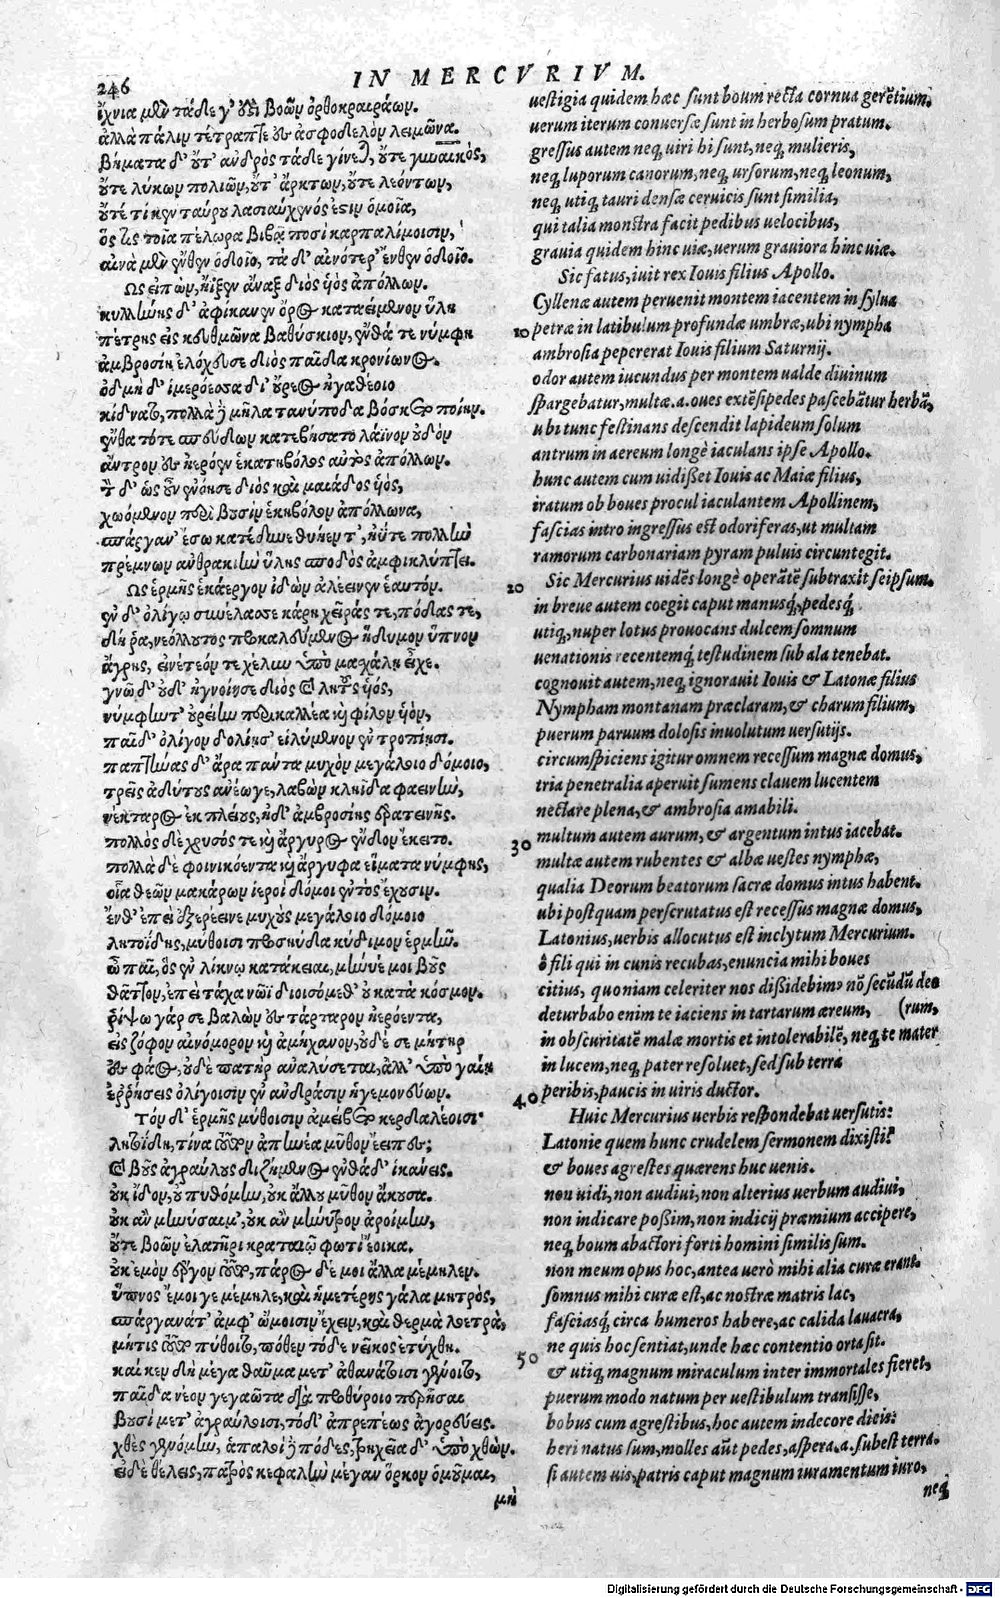 246
IN MERCVRIVM.
ἴχνια μὲν τάδε γ' ἐστὶ βοῶν ὀρθοκραιράων.
ἀλλὰ πάλιν τέτραπται ἐς ἀσφοδελὸν λειμῶνα.
βήματα δ' οὔτ' ἀνδρὸς τάδε γίνεται, οὔτε γυναικὸς,
οὔτε λύκων πολιῶν, οὔτ' ἄρκτων, οὔτε λεόντων,
οὔτέ τι κεν ταύρου λασιαύχενός ἐστιν ὁμοῖα,
ὅς τις τοῖα πέλωρα βιβᾷ ποσὶ καρπαλίμοισιν,
αἰνὰ μὲν ἔνθεν ὁδοῖο, τὰ δ' αἰνότερ' ἔνθεν ὁδοῖο.
Ως εἰπὼν, ἤϊξεν ἄναξ διὸς υἱὸς ἀπόλλων.
κυλλήνης δ' ἀφίκανεν ὄρος καταείμενον ὕλη
πέτρης εἰς κευθμῶνα βαθύσκιον, ἔνθά τε νύμφη
ἀμβροσίη ἐλόχευσε διὸς παῖδα κρονίωνος.
ὀδμὴ δ' ἱμερόεσσα δι' οὔρεος ἠγαθέοιο
κίδναται, πολλὰ δὲ μῆλα τανύποδα βόσκετο ποίην.
ἔνθα τότε σπεύδων κατεβήσατο λάϊνον οὐδὸν
ἄντρον ἐς ἠερόεν ἑκατηβόλος αὐτὸς ἀπόλλων.
τὸν δ' ὡς οὖν ἐνόησε διὸς καὶ μαιάδος υἱὸς,
χωόμενον περὶ βουσὶν ἑκηβόλον ἀπόλλωνα,
σπάργαν' ἔσω κατέδυνε θυήεντ', ἠΰτε πολλὴν
πρέμνων ἀνθρακιὴν ὕλης σποδὸς ἀμφικλύπτει.
Ως ἑρμῆς ἑκάεργον ἰδὼν ἀλέεινεν ἑαυτόν.
ἐν δ' ὀλίγῳ συνέλασσε κάρη χεῖράς τε, πόδας τε,
δή ῥα, νεόλλουτος προκαλούμενος ἥδυμον ὕπνον
ἄγρης, εἰνετεόν τε χέλυν ὑπὸ μαχάλη εἶχε.
γνῶ δ' οὐδ' ἠγνοίησε διὸς καὶ λητοῦς υἱὸς,
νύμφην τ' οὐρείην περικαλλέα καὶ φίλον υἱὸν,
παῖδ' ὀλίγον δολίῃσ' εἰλύμενον ἐντροπίῃσι.
παπτήνας δ' ἄρα πάντα μυχὸν μεγάλοιο δόμοιο,
τρεῖς ἀδύτους ἀνέῳγε, λαβὼν κληῖδα φαεινὴν,
νέκταρος ἐκπλείους, ἠδ' ἀμβροσίης ἐρατεινῆς.
πολλὸς δὲ χρυσός τε καὶ ἄργυρος ἔνδον ἔκειτο.
πολλὰ δὲ φοινικόεντα καὶ ἄργυφα εἵματα νύμφης,
οἷα θεῶν μακάρων ἱεροὶ δόμοι ἐντὸς ἔχουσιν.
ἔνθ' ἐπεὶ ἐξερέεινε μυχοὺς μεγάλοιο δόμοιο
λητοΐδης, μύθοισι προσηύδα κύδιμον ἑρμῆν.
ὦ παῖ, ὃς ἐν λίκνῳ κατάκειαι, μήνυέ μοι βοῦς
θᾶττον, ἐπεὶ τάχα νῶϊ διοισόμεθ' οὐ κατὰ κόσμον.
ῥίψω γάρ σε βαλὼν ἐς τάρταρον ἠερόεντα,
εἰς ζόφον αἰνόμορον καὶ ἀμήχανον, οὐδέ σε μήτηρ
ἐς φάος, οὐδὲ πατὴρ ἀναλύσεται, ἀλλ' ὑπὸ γαίῃ
ἐῤῥήσεις ὀλίγοισιν ἐν ἀνδράσιν ἡγεμονεύων.
Τὸν δ' ἑρμῆς μύθοισιν ἀμείβετο κερδαλέοισι·
λητοΐδη, τίνα τοῦτον ἀπηνέα μῦθον ἔειπες;
καὶ βοῦς ἀγραύλους διζήμενος ἐνθάδ' ἱκάνεις.
οὐκ ἴδον, οὐ πυθόμην, οὐκ ἄλλου μῦθον ἄκουσα.
οὐκ ἂν μηνύσαιμ', οὐκ ἂν μήνυτρον ἀροίμην,
οὔτε βοῶν ἐλατῆρι κραταιῷ φωτὶ ἔοικα.
οὐκ ἐμὸν ἔργον τοῦτο, πάρος δέ μοι ἄλλα μέμηλεν.
ὕπνος ἔμοι γε μέμηλε, καὶ ἡμετέρης γάλα μητρὸς,
σπάργανάτ' ἀμφ' ὤμοισιν ἔχειν, καὶ θερμὰ λοετρὰ,
μήτις τοῦτο πύθοιτο, πόθεν τόδε νεῖκος ἐτύχθη.
καί κεν δὴ μέγα θαῦμα μετ' ἀθανάτοισι γένοιτο,
παῖδα νέον γεγαῶτα διὰ προθύροιο περῆσαι
βουσὶ μετ' ἀγραύλοισι, τόδ' ἀπρεπέως ἀγορεύεις.
χθὲς γενόμην, ἁπαλοὶ δὲ πόδες, τρηχεῖα δ' ὑπὸ χθών.
εἰ δὲ θέλεις, πατρὸς κεφαλὴν μέγαν ὅρκον ὀμοῦμαι,
μὴ
uestigia quidem hæc sunt boum recta cornua gerẽtium,
uerum iterum conuersæ sunt in herbosum pratum.
gressus autem neq; uiri hi sunt, neq; mulieris,
neq; luporum canorum, neq; ursorum, neq; leonum,
neq; utiq; tauri densæ ceruicis sunt similia,
qui talia monstra facit pedibus uelocibus,
grauia quidem hinc uiæ, uerum grauiora hinc uiæ.
Sic fatus, iuit rex Iouis filius Apollo.
Cyllenæ autem peruenit montem iacentem in sylua
10 petræ in latibulum profundæ umbræ, ubi nympha
ambrosia pepererat Iouis filium Saturnij.
odor autem iucundus per montem ualde diuinum
spargebatur, multæ.a.oues extẽsipedes pascebãtur herbã,
ubi tunc festinans descendit lapideum solum
antrum in aereum longè iaculans ipse Apollo.
hunc autem cum uidisset Iouis ac Maiæ filius,
iratum ob boues procul iaculantem Apollinem,
fascias intro ingressus est odoriferas, ut multam
ramorum carbonariam pyram puluis circuntegit.
20 Sic Mercurius uidẽs longè operãtẽ subtraxit seipsum.
in breue autem coegit caput manusq́;, pedesq́;
utiq;, nuper lotus prouocans dulcem somnum
uenationis recentemq́; testudinem sub ala tenebat.
cognouit autem, neq; ignorauit Iouis & Latonæ filius
Nympham montanam præclaram, & charum filium,
puerum paruum dolosis inuolutum uersutijs.
circumspiciens igitur omnem recessum magnæ domus,
tria penetralia aperuit sumens clauem lucentem
nectare plena, & ambrosia amabili.
30 multum autem aurum, & argentum intus iacebat.
multæ autem rubentes & albæ uestes nymphæ,
qualia Deorum beatorum sacræ domus intus habent.
ubi postquam perscrutatus est recessus magnæ domus,
Latonius, uerbis allocutus est inclytum Mercurium.
ô fili qui in cunis recubas, enuncia mihi boues
citius, quoniam celeriter nos dissidebim⁹ nõ secũdũ deco
deturbabo enim te iaciens in tartarum æreum, (rum,
in obscuritatẽ malæ mortis et intolerabilẽ, neq; te mater
in lucem, neq; pater resoluet, sed sub terra
40 peribis, paucis in uiris ductor.
Huic Mercurius uerbis respondebat uersutis:
Latonie quem hunc crudelem sermonem dixisti?
& boues agrestes quærens huc uenis.
non uidi, non audiui, non alterius uerbum audiui,
non indicare possim, non indicij præmium accipere,
neq; boum abactori forti homini similis sum.
non meum opus hoc, antea uerò mihi alia curæ erant.
somnus mihi curæ est, ac nostræ matris lac,
fasciasq́; circa humeros habere, ac calida lauacra,
50 ne quis hoc sentiat, unde hæc contentio orta sit.
& utiq; magnum miraculum inter immortales fieret,
puerum modo natum per uestibulum transisse,
bobus cum agrestibus, hoc autem indecore dicis:
heri natus sum, molles aũt pedes, aspera.a.subest terra.
si autem uis, patris caput magnum iuramentum iuro,
neq;
Digitalisierung gefördert durch die Deutsche Forschungsgemeinschaft - DFG